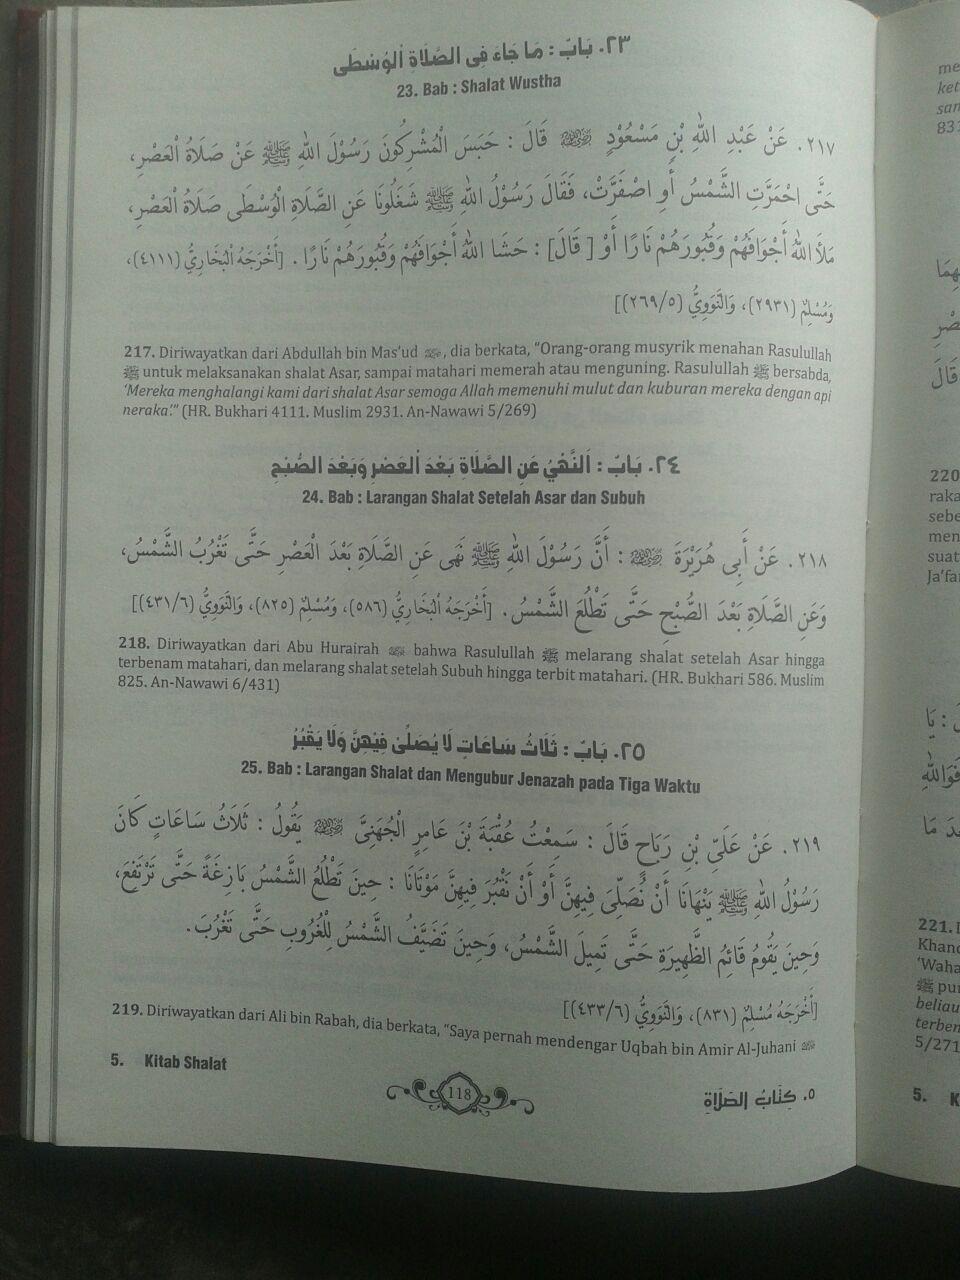 ٢٣. بَابٌ : مَا جَاءَ فِي الصَّلَاةِ الْوُسْطَى
23. Bab : Shalat Wustha
٢١٧. عَنْ عَبْدِ اللهِ بْنِ مَسْعُوْدٍ ﷺ قَالَ : حَبَسَ الْمُشْرِكُونَ رَسُوْلَ اللهِ ﷺ عَنْ صَلَاةِ الْعَصْرِ،
حَتَّى احْمَرَّتِ الشَّمْسُ أَوِ اصْفَرَّتْ، فَقَالَ رَسُوْلُ اللهِ ﷺ شَغَلُونَا عَنِ الصَّلَاةِ الْوُسْطَى صَلَاةِ الْعَصْرِ،
مَلَأَ اللهُ أَجْوَافَهُمْ وَقُبُورَهُمْ نَارًا أَوْ [ قَالَ] : حَشَا اللهُ أَجْوَافَهُمْ وَقُبُورَهُمْ نَارًا . [أَخْرَجَهُ الْبُخَارِيُّ (٤١١١)،
وَمُسْلِمٌ (٢٩٣١)، وَالنَّوَوِيُّ (٢٦٩/٥)]
217. Diriwayatkan dari Abdullah bin Mas'ud , dia berkata, "Orang-orang musyrik menahan Rasulullah
ﷺ untuk melaksanakan shalat Asar, sampai matahari memerah atau menguning. Rasulullah ﷺ bersabda,
'Mereka menghalangi kami dari shalat Asar semoga Allah memenuhi mulut dan kuburan mereka dengan api
neraka.'" (HR. Bukhari 4111. Muslim 2931. An-Nawawi 5/269)
٢٤. بَابٌ : اَلنَّهْيُ عَنِ الصَّلَاةِ بَعْدَ الْعَصْرِ وَبَعْدَ الصُّبْحِ
24. Bab : Larangan Shalat Setelah Asar dan Subuh
٢١٨. عَنْ أَبِى هُرَيْرَةَ ﷺ : أَنَّ رَسُوْلَ اللهِ ﷺ نَهَى عَنِ الصَّلَاةِ بَعْدَ الْعَصْرِ حَتَّى تَغْرُبُ الشَّمْسُ،
وَعَنِ الصَّلَاةِ بَعْدَ الصُّبْحِ حَتَّى تَطْلُعَ الشَّمْسُ . [أَخْرَجَهُ الْبُخَارِيُّ (٥٨٦)، وَمُسْلِمٌ (٨٢٥)، وَالنَّوَوِيُّ (٤٣١/٦)]
218. Diriwayatkan dari Abu Hurairah bahwa Rasulullah ﷺ melarang shalat setelah Asar hingga
terbenam matahari, dan melarang shalat setelah Subuh hingga terbit matahari. (HR. Bukhari 586. Muslim
825. An-Nawawi 6/431)
٢٥. بَابٌ : ثَلَاثُ سَاعَاتٍ لَا يُصَلَّى فِيْهِنَّ وَلَا يَقْبُرُ
25. Bab : Larangan Shalat dan Mengubur Jenazah pada Tiga Waktu
٢١٩. عَنْ عَلَيِّ بْنِ رَبَاحٍ قَالَ : سَمِعْتُ عُقْبَةَ بْنَ عَامِرٍ الْجُهَنِيَّ ﷺ يَقُولُ : ثَلَاثُ سَاعَاتٍ كَانَ
رَسُوْلُ اللهِ ﷺ يَنْهَانَا أَنْ نُصَلِّيَ فِيهِنَّ أَوْ أَنْ نَقْبُرَ فِيهِنَّ مَوْتَانَا : حِينَ تَطْلُعُ الشَّمْسُ بَازِغَةً حَتَّى تَرْتَفِعَ،
وَحِينَ يَقُومُ قَائِمُ الظَّهِيرَةِ حَتَّى تَمِيلَ الشَّمْسُ، وَحِينَ تَضَيَّفُ الشَّمْسُ لِلْغُرُوبِ حَتَّى تَغْرُبَ.
[أَخْرَجَهُ مُسْلِمٌ (٨٣١)، وَالنَّوَوِيُّ (٤٣٣/٦)]
219. Diriwayatkan dari Ali bin Rabah, dia berkata, "Saya pernah mendengar Uqbah bin Amir Al-Juhani
5. Kitab Shalat
118
٥. كِتَابُ الصَّلَاةِ
220
221.
5/271
5.